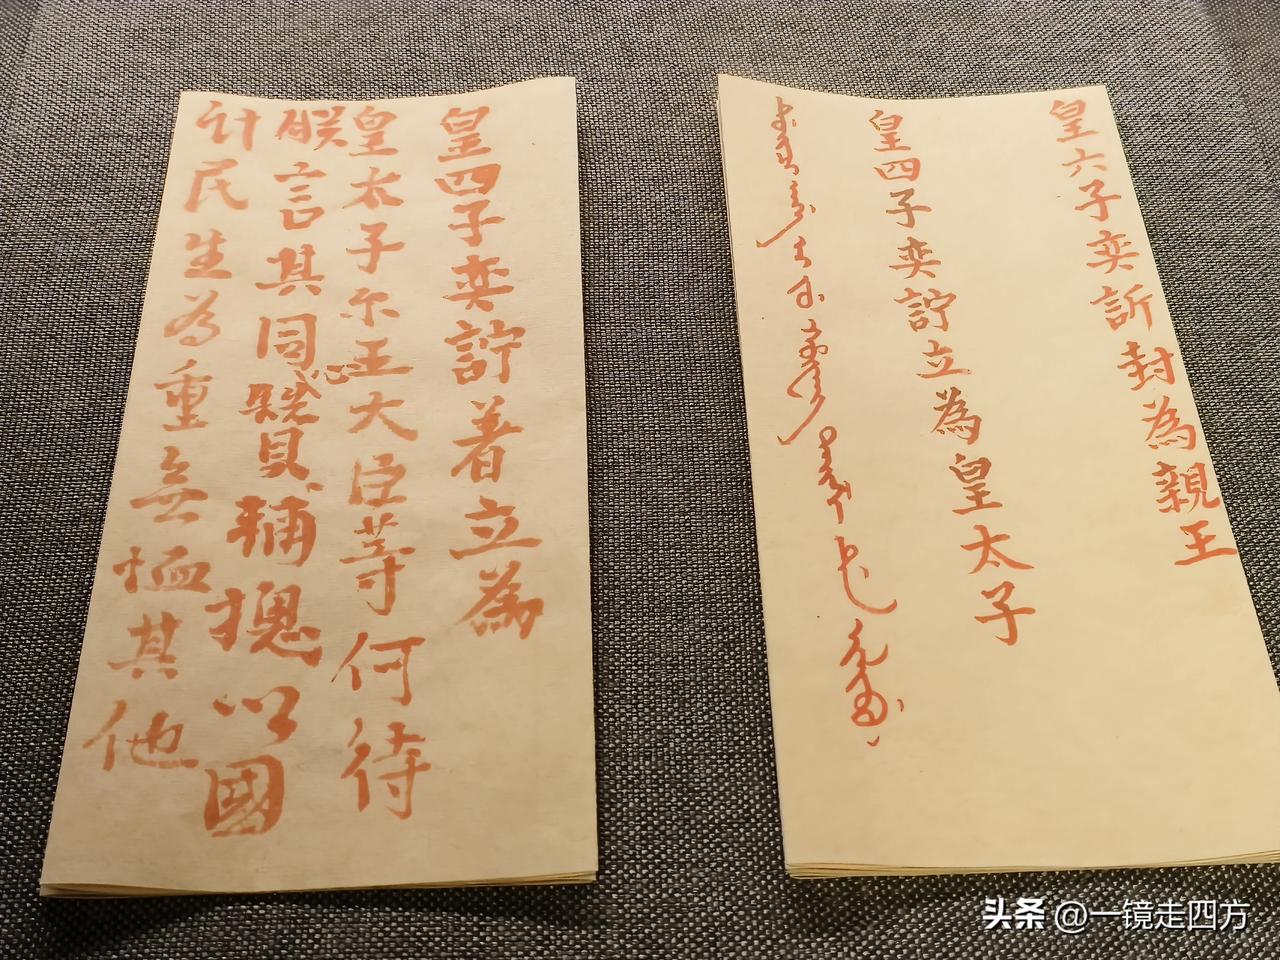 皇六子奕訢封為親王
皇四子奕詝立為皇太子
皇四子奕詝着立為
皇太子尔王大臣等何待
朕言其同心贊輔捴以國
計民生為重無恤其他
头条 @一镜走四方